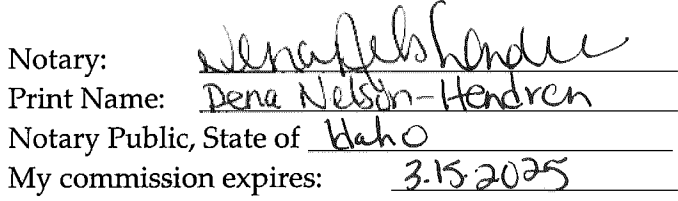 Notary:
Print Name: Dena Nelson-Hendren
Notary Public, State of Idaho
My commission expires: 3.15.2025